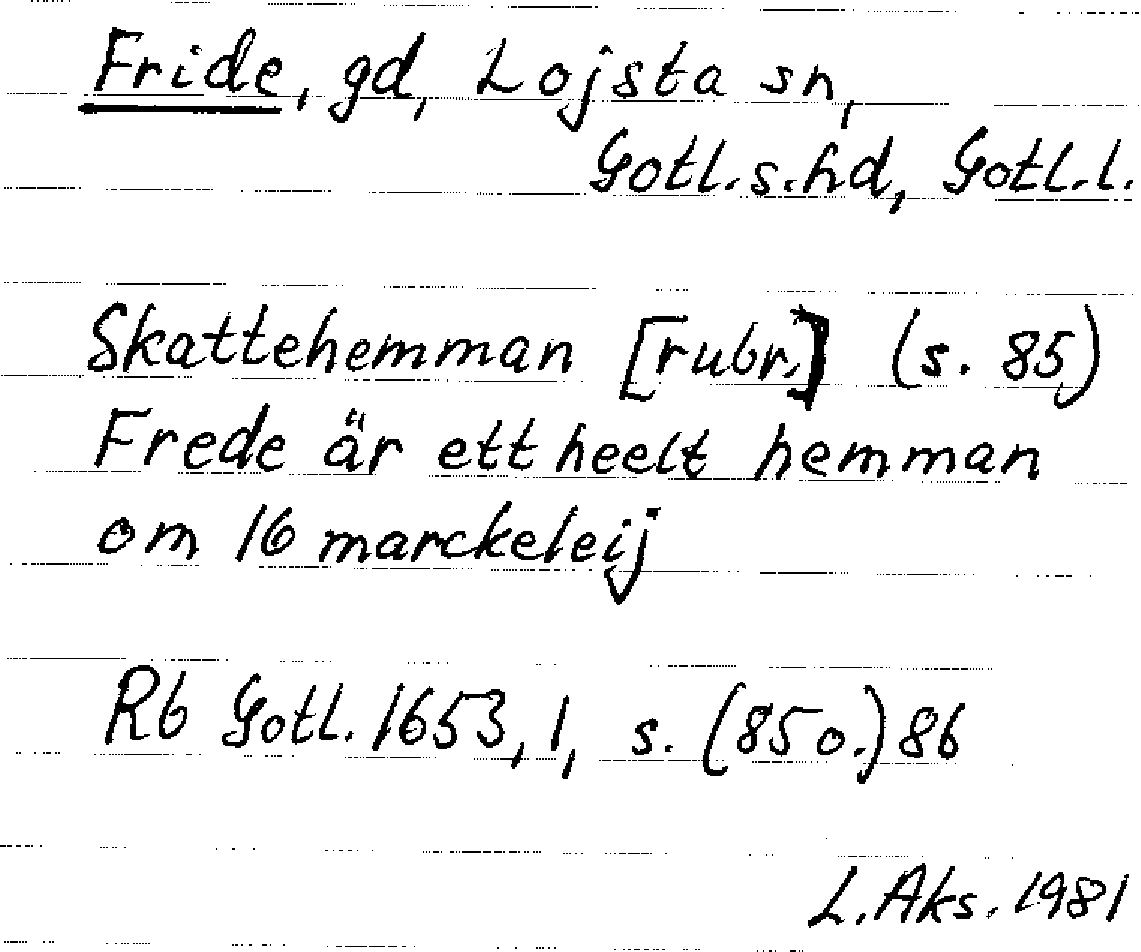 Fride, gd, Lojsta sn,
Gotl.s.hd, Gotl.l.
Skattehemman [rubr.] (s. 85)
Frede är ett heelt hemman
om 16 marckeleij
Rb Gotl. 1653, 1, s. (85 o.) 86
L. Aks. 1981